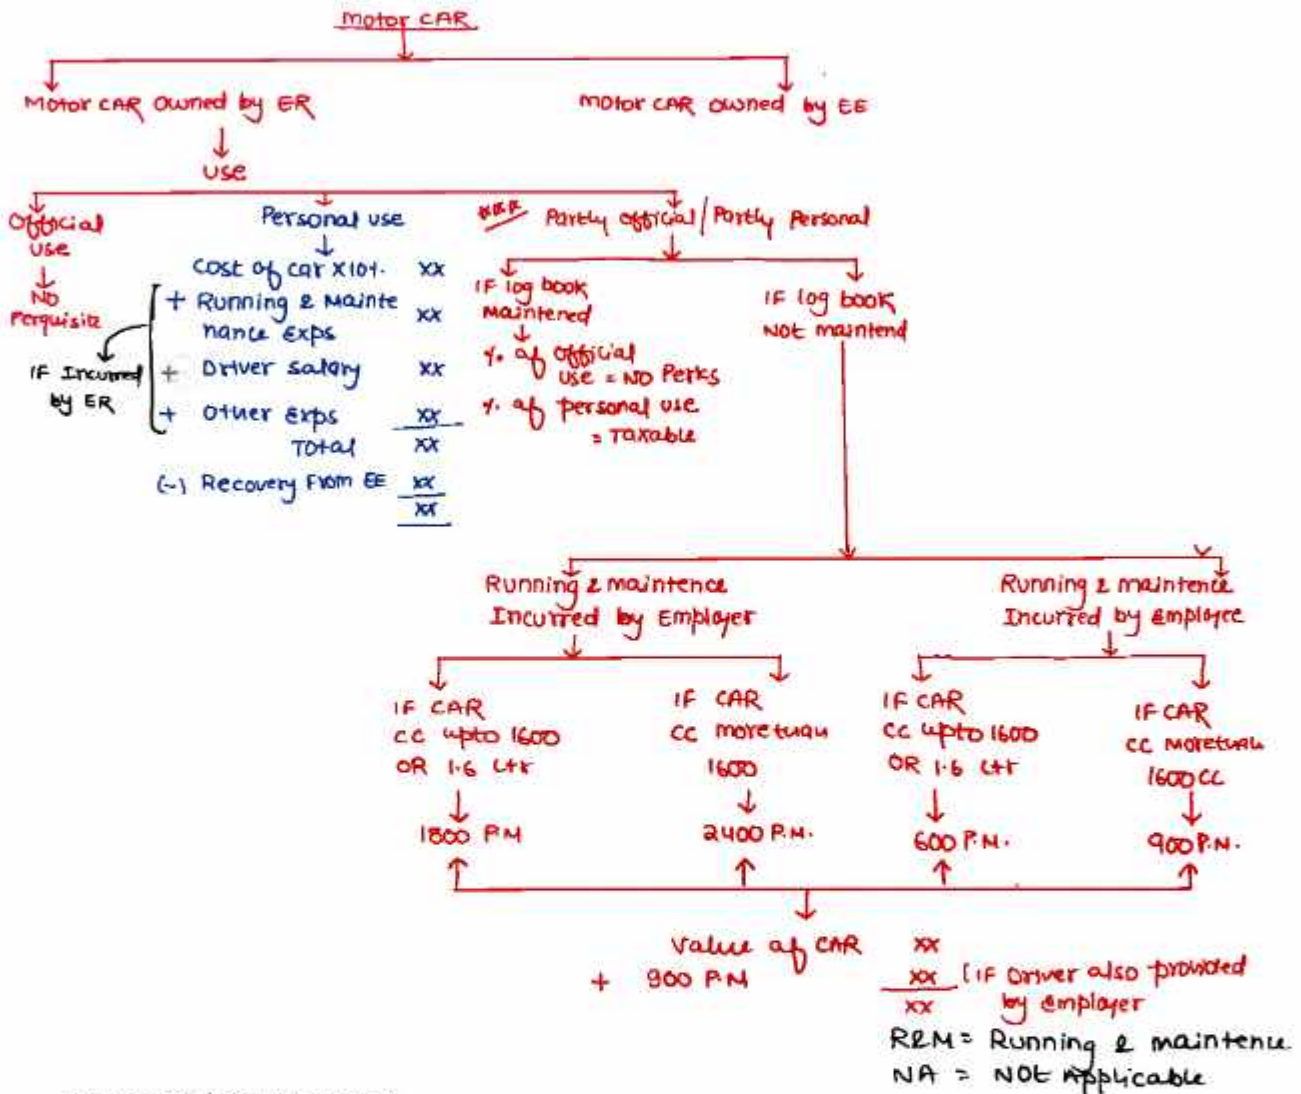 Motor CAR
Motor CAR Owned by ER
motor CAR owned by EE
use
Official
use
NO
Perquisite
Personal use
Cost of car x10%. xx
+ Running & Mainte
nance Exps xx
+ Driver salary xx
+ Other Exps xx
Total xx
(-) Recovery From EE xx
xx
IF Incurred
by ER
*** Partly official / Partly Personal
IF log book
Maintened
%. of Official
use = NO Perks
%. of personal use
= Taxable
IF log book
NOT maintend
Running & maintence
Incurred by Employer
Running & maintence
Incurred by employee
IF CAR
CC upto 1600
OR 1.6 Ltr
1800 P.M
IF CAR
CC morethan
1600
2400 P.M.
IF CAR
CC upto 1600
OR 1.6 Ltr
600 P.M.
IF CAR
CC Morethan
1600 CC
900 P.M.
Value of CAR xx
+ 900 P.M xx (IF Driver also provided
xx by employer
R&M = Running & maintence
NA = NOt Applicable